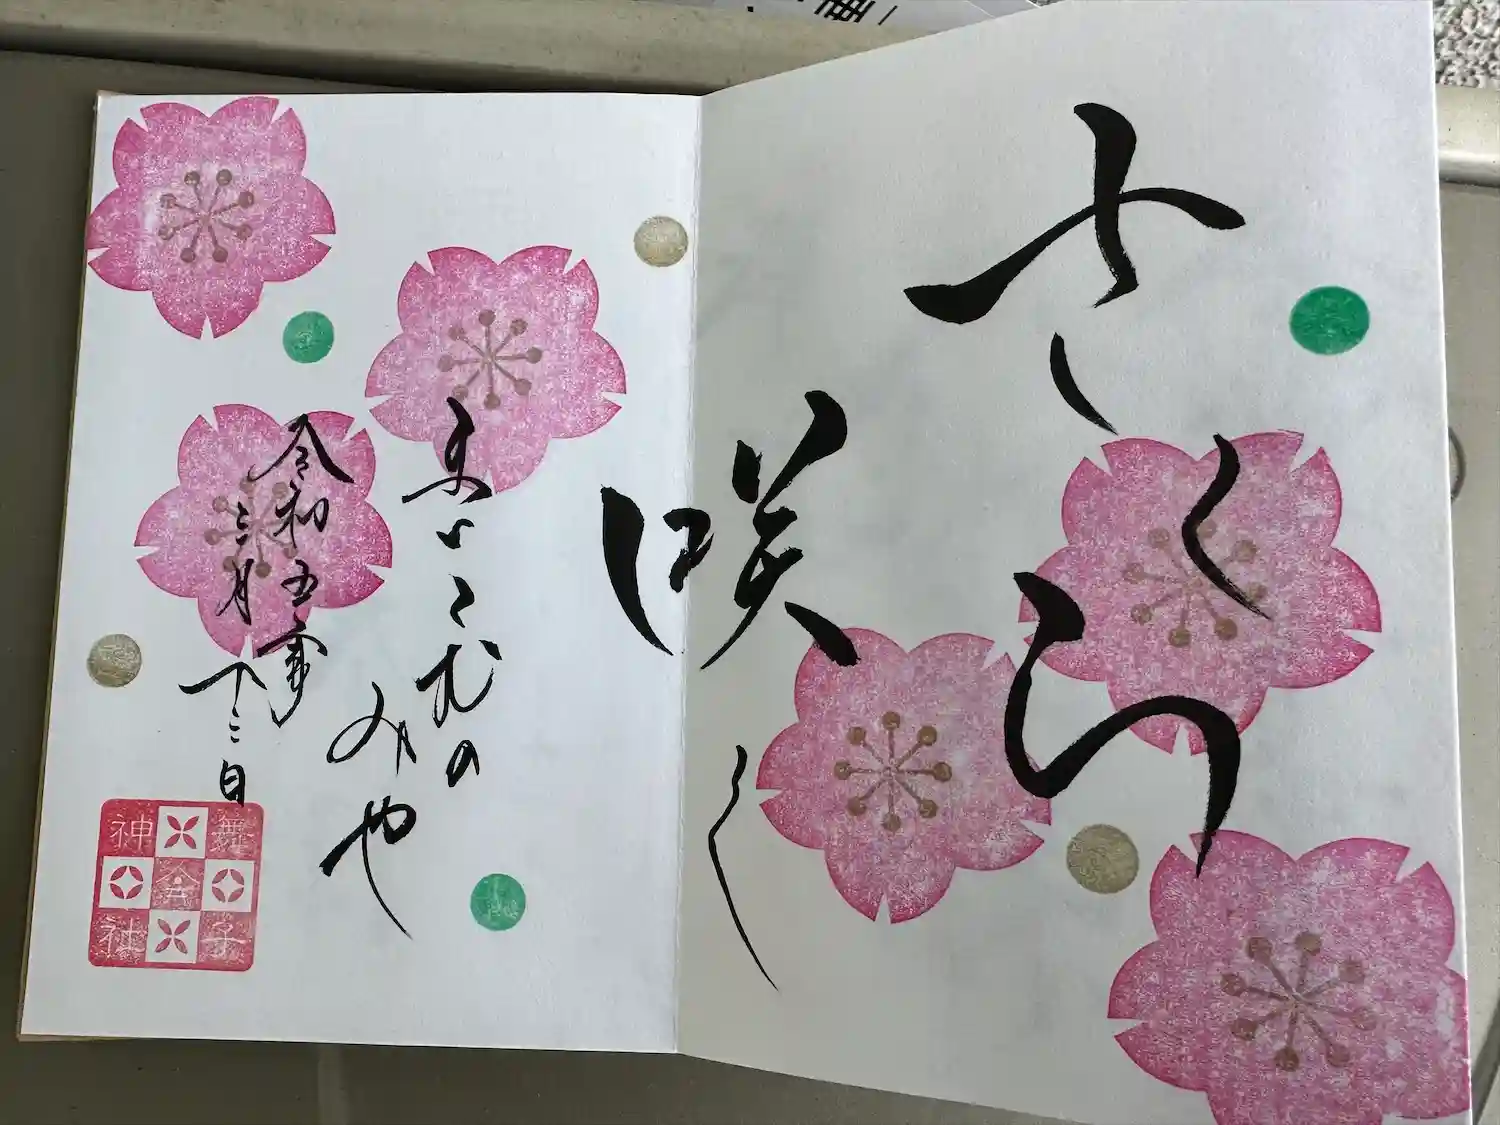 さくら
咲く
まいこむの
みや
令和五年
三月十三日
舞子
六
神社